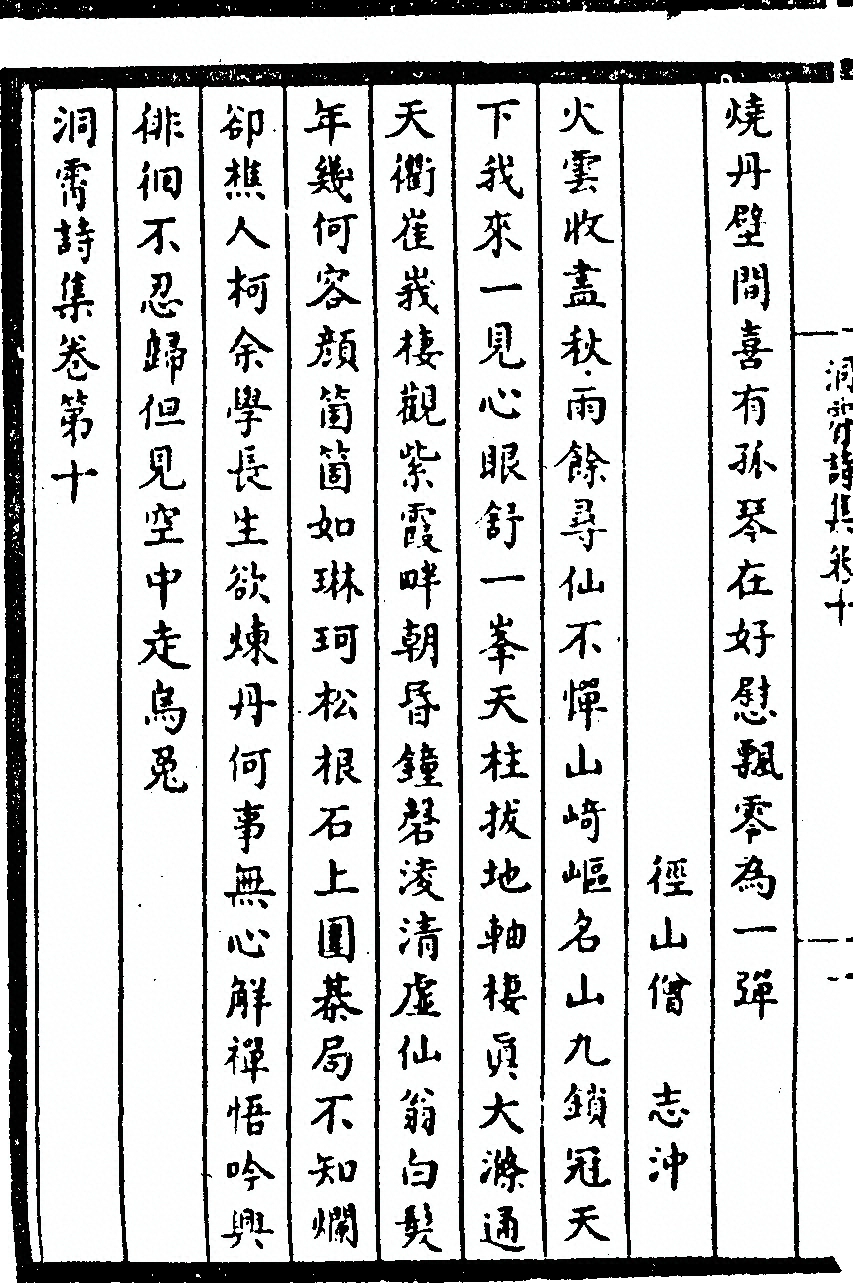 燒丹壁間喜有孤琴在好慰飄零為一彈
徑山僧　志沖
火雲收盡秋雨餘尋仙不憚山崎嶇名山九鎖冠天
下我來一見心眼舒一峯天柱拔地軸棲真大滌通
天衢崔峩棲觀紫霞畔朝昏鐘磬淩清虛仙翁白髮
年幾何容顏箇箇如琳珂松根石上圍棊局不知爛
卻樵人柯余學長生欲煉丹何事無心解禪悟吟興
徘徊不忍歸但見空中走烏兎
洞霄詩集卷第十
洞霄詩集卷十